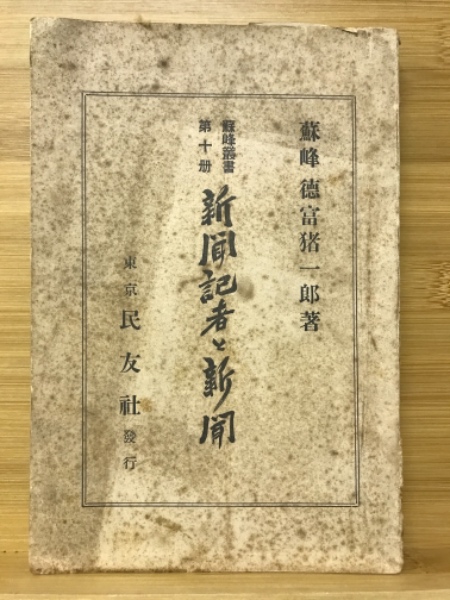 蘇峰 德富猪一郎著
蘇峰叢書
第十册
新聞記者と新聞
東京 民友社 發行